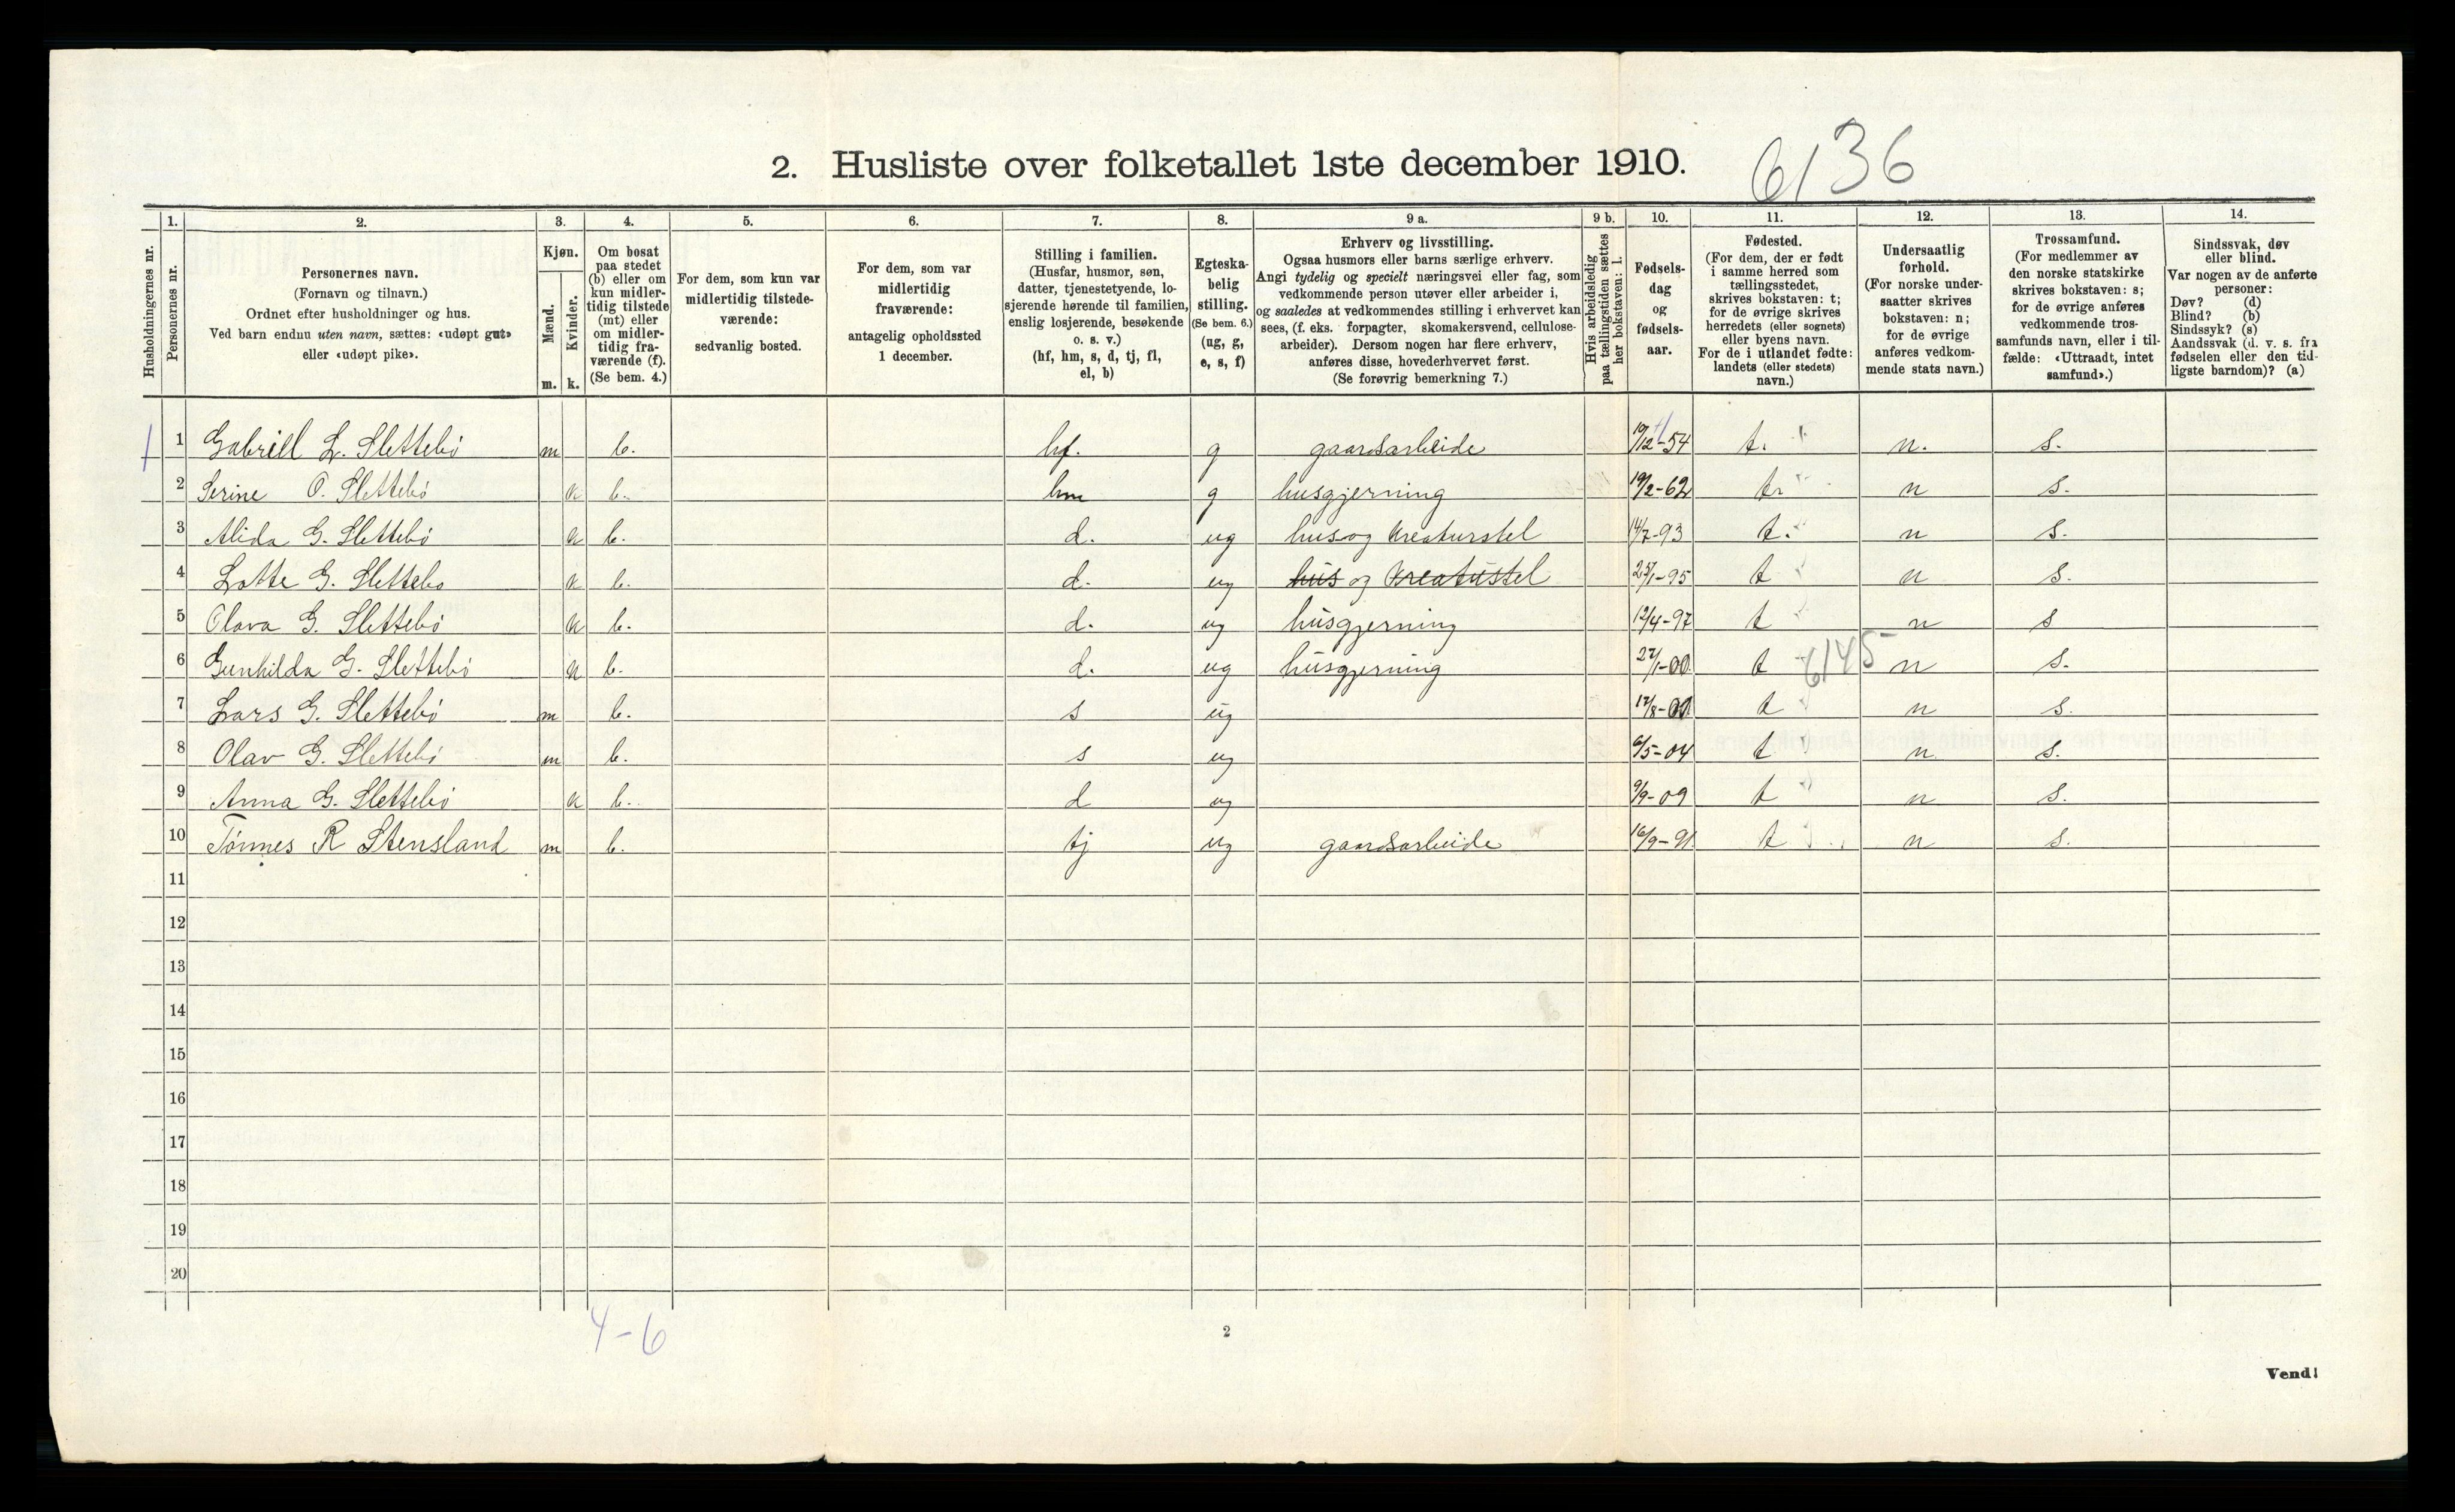 2. Husliste over folketallet 1ste december 1910. 6136
1. 2. 3. 4. 5. 6. 7. 8. 9 a. 9 b. 10. 11. 12. 13. 14.
Husholdningernes nr.
Personernes nr.
Personernes navn.
(Fornavn og tilnavn.)
Ordnet efter husholdninger og hus.
Ved barn endnu uten navn, sættes: «udøpt gut»
eller «udøpt pike».
Kjøn.
Mænd.
Kvinder.
m. k.
Om bosat
paa stedet
(b) eller om
kun midler-
tidig tilstede
(mt) eller
om midler-
tidig fra-
værende (f).
(Se bem. 4.)
For dem, som kun var
midlertidig tilstede-
værende:
sedvanlig bosted.
For dem, som var
midlertidig
fraværende:
antagelig opholdssted
1 december.
Stilling i familien.
(Husfar, husmor, søn,
datter, tjenestetyende, lo-
sjerende hørende til familien,
enslig losjerende, besøkende
o. s. v.)
(hf, hm, s, d, tj, fl,
el, b)
Egteska-
belig
stilling.
(Se bem. 6.)
(ug, g,
e, s, f)
Erhverv og livsstilling.
Ogsaa husmors eller barns særlige erhverv.
Angi tydelig og specielt næringsvei eller fag, som
vedkommende person utøver eller arbeider i,
og saaledes at vedkommendes stilling i erhvervet kan
sees, (f. eks. forpagter, skomakersvend, cellulose-
arbeider). Dersom nogen har flere erhverv,
anføres disse, hovederhvervet først.
(Se forøvrig bemerkning 7.)
Hvis arbeidsledig
paa tællingstiden sættes
her bokstaven: l.
Fødsels-
dag
og
fødsels-
aar.
Fødested.
(For dem, der er født
i samme herred som
tællingsstedet,
skrives bokstaven: t;
for de øvrige skrives
herredets (eller sognets)
eller byens navn.
For de i utlandet fødte:
landets (eller stedets)
navn.)
Undersaatlig
forhold.
(For norske under-
saatter skrives
bokstaven: n;
for de øvrige
anføres vedkom-
mende stats navn.)
Trossamfund.
(For medlemmer av
den norske statskirke
skrives bokstaven: s;
for de øvrige anføres
vedkommende tros-
samfunds navn, eller i til-
fælde: «Uttraadt, intet
samfund».)
Sindssvak, døv
eller blind.
Var nogen av de anførte
personer:
Døv? (d)
Blind? (b)
Sindssyk? (s)
Aandssvak (d. v. s. fra
fødselen eller den tid-
ligste barndom)? (a)
1 Gabriell L. Slettebö m b. hf. g gaardsarbeide 19/12-54 t. n. s.
2 Serine O. Slettebö k b. hm g husgjerning 19/2-62 t. n s.
3 Alida G. Slettebö k b. d. ug hus og kreaturstel 14/7-93 t. n s.
4 Lotte G. Slettebo k b. d. ug hus og kreatustel 25/1-95 t n s.
5 Olava G. Slettebö k b. d. ug husgjerning 12/4-97 t n s
6 Gunhilda G. Slettebö k b. d. ug husgjerning 27/1-00 t 6145 n s.
7 Lars G. Slettebö m b. s ug 17/8-01 t n s.
8 Olav G. Slettebö m b. s ug 6/5-04 t n s.
9 Anna G. Slettebö k b. d ug 9/9-09 t n s.
10 Tönnes R Stensland m b. tj ug gaardsarbeide 16/9-91 t n s.
11
12
13
14
15
16
17
18
19
20
4-6
2
Vend!